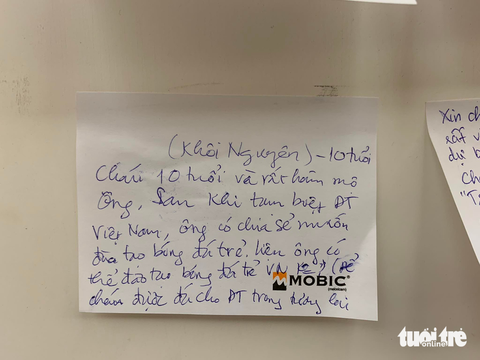 (Khôi Nguyên) - 10 tuổi
Cháu 10 tuổi và rất hâm mộ
ông, Sau khi tạm biệt ĐT
Việt Nam, ông có chia sẻ muốn
đào tạo bóng đá trẻ. liệu ông có
thể đào tạo bóng đá trẻ VN (để
cháu được đá cho ĐT trong tương lai
MOBIC
Xin ch
rất v
dự b
Ch
"T
tuổi trẻ
online